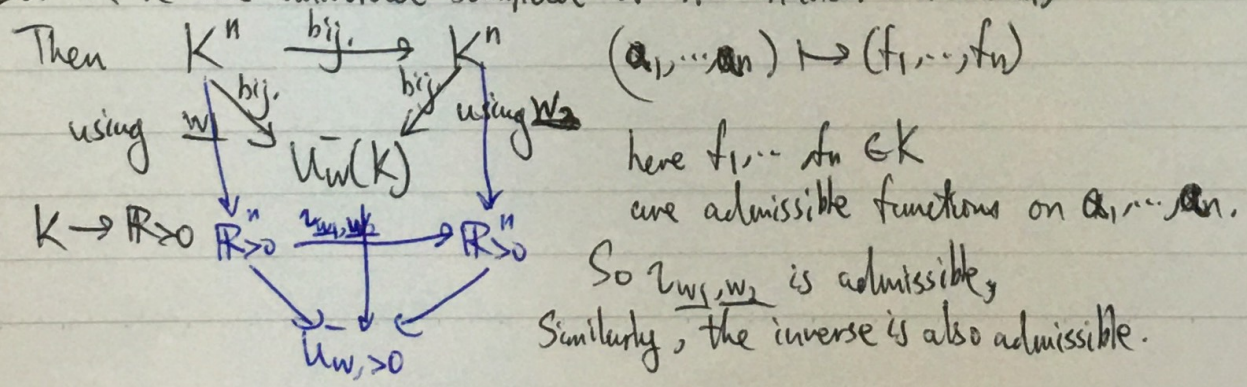 Then Kⁿ bij. Kⁿ (a₁,⋯,aₙ) ↦ (f₁,⋯,fₙ)
bij. bij.
using w₁ using w₂
U⁻_w(K) here f₁,⋯ fₙ ∈K
are admissible functions on a₁,⋯,aₙ.
K → ℝ>0 ℝⁿ>0 ℝⁿ>0
So τ_w₁,w₂ is admissible,
Similarly, the inverse is also admissible.
U⁻_w,>0